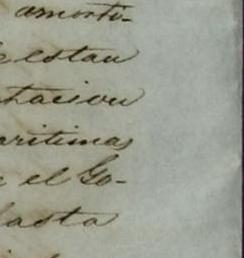 amorti-
e estau
tacion
aritimas
e el Go-
hasta